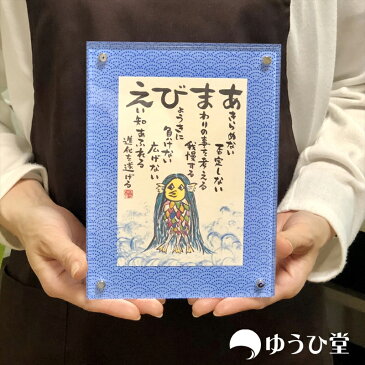 あきらめない
否定しない
まわりの事を考える
我慢する
びょうきに
負けない
広げない
えい知あふれる
進化を遂げる
ゆうひ堂